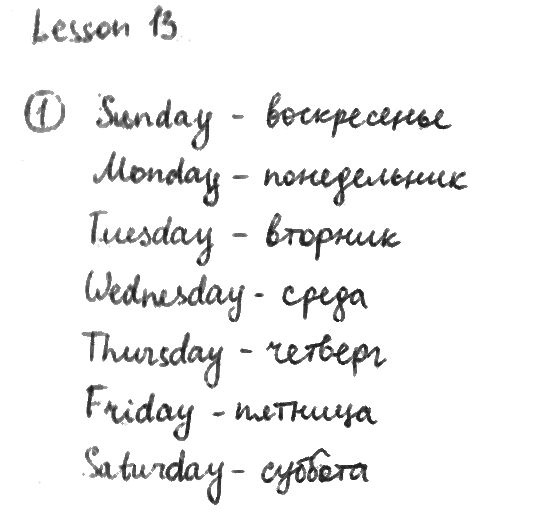 Lesson 13
1 Sunday - воскресенье
Monday - понедельник
Tuesday - вторник
Wednesday - среда
Thursday - четверг
Friday - пятница
Saturday - суббота